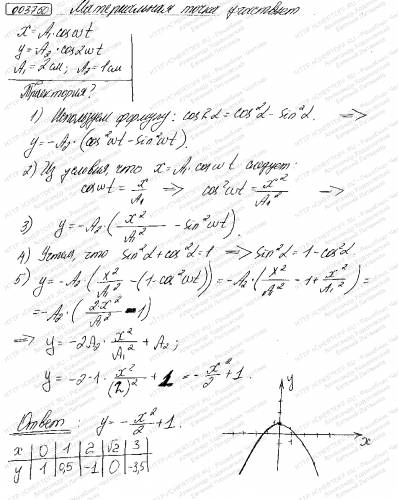 003750 Материальная точка участвует
x = A₁·cosωt
y = A₂·cos2ωt
A₁ = 2см; A₂ = 1см
Траектория?
1) Используем формулу: cos2α = cos²α - sin²α. =>
y = -A₂·(cos²ωt - sin²ωt).
2) Из условия, что x = A₁cosωt следует:
cosωt = x/A₁ => cos²ωt = x²/A₁² =>
3) y = -A₂(x²/A₁² - sin²ωt).
4) Учтя, что sin²α + cos²α = 1 => sin²α = 1 - cos²α.
5) y = -A₂(x²/A₁² - (1 - cos²ωt)) = -A₂·(x²/A² - 1 + x²/A₁²) =
= -A₂·(2x²/A₁² - 1)
=> y = -2A₂·x²/A₁² + A₂;
y = -2·1·x²/(2)² + 1 = -x²/2 + 1.
Ответ: y = -x²/2 + 1.
x | 0 | 1 | 2 | √2 | 3
y | 1 | 0,5 | -1 | 0 | -3,5
y
1
x